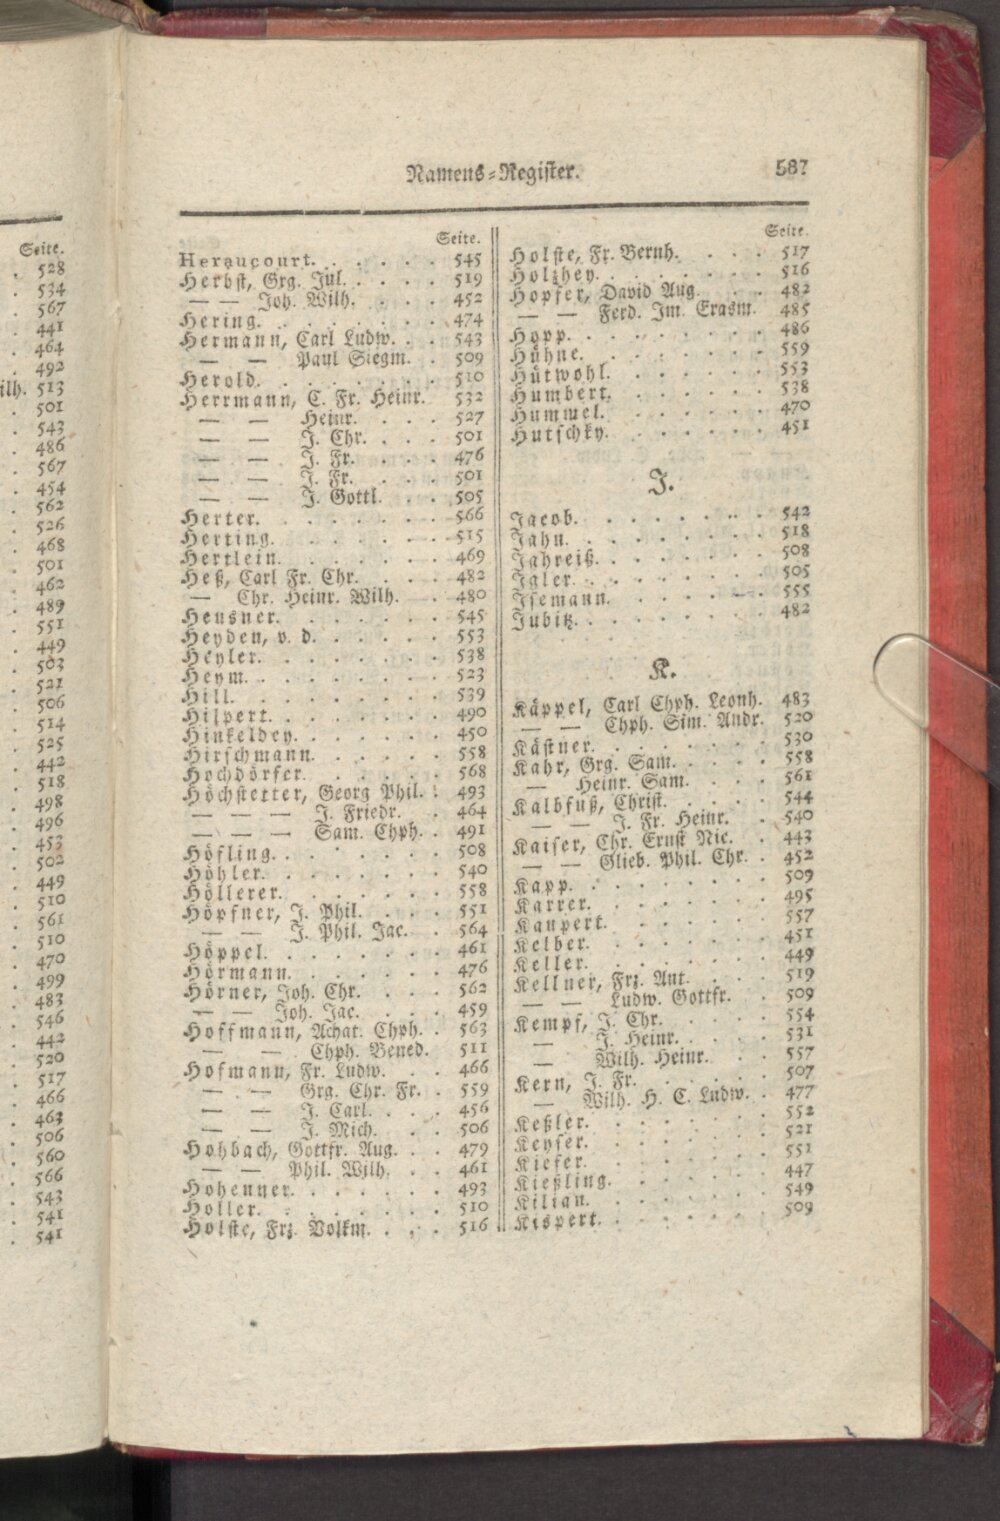 Namens-Register. 587
Seite.
Heraucourt. . . . . . 545
Herbst, Grg. Jul. . . . . 519
— — Joh. Wilh. . . . 452
Hering. . . . . . . . 474
Hermann, Carl Ludw. . . 543
— — Paul Siegm. . 509
Herold. . . . . . . . 510
Herrmann, C. Fr. Heinr. 532
— — Heinr. . . . 527
— — J. Chr. . . . 501
— — J. Fr. . . . 476
— — J. Fr. . . . 501
— — J. Gottl. . . 505
Herter. . . . . . . . 566
Herting. . . . . . . . 515
Hertlein. . . . . . . 469
Heß, Carl Fr. Chr. . . . 482
— Chr. Heinr. Wilh. . . 480
Heusner. . . . . . . 545
Heyden, v. d. . . . . . 553
Heyler. . . . . . . . 538
Heym. . . . . . . . 523
Hill. . . . . . . . . 539
Hilpert. . . . . . . . 490
Hinkeldey. . . . . . . 450
Hirschmann. . . . . . 558
Hochdörfer. . . . . . 568
Höchstetter, Georg Phil. . 493
— — — J. Friedr. . 464
— — — Sam. Chph. . 491
Höfling. . . . . . . . 508
Höhler. . . . . . . . 540
Höllerer. . . . . . . 558
Höpfner, J. Phil. . . . 551
— — J. Phil. Jac. . 564
Höppel. . . . . . . . 461
Hörmann. . . . . . . 476
Hörner, Joh. Chr. . . . 562
— — Joh. Jac. . . . 459
Hoffmann, Achat. Chph. . 563
— — Chph. Bened. 511
Hofmann, Fr. Ludw. . . 466
— — Grg. Chr. Fr. . 559
— — J. Carl. . . . 456
— — J. Mich. . . . 506
Hohbach, Gottfr. Aug. . . 479
— — Phil. Wilh. . . 461
Hohenner. . . . . . . 493
Holler. . . . . . . . 510
Holste, Frz. Volkm. . . . 516
Seite.
Holste, Fr. Bernh. . . . 517
Holzhey. . . . . . . . 516
Hopfer, David Aug. . . 482
— — Ferd. Im. Erasm. 485
Hopp. . . . . . . . 486
Hühne. . . . . . . . 559
Hütwohl. . . . . . . 553
Humbert. . . . . . . 538
Hummel. . . . . . . 470
Hutschky. . . . . . . 451
J.
Jacob. . . . . . . . 542
Jahn. . . . . . . . 518
Jahreiß. . . . . . . . 508
Igler. . . . . . . . 505
Isemann. . . . . . . 555
Jubitz. . . . . . . . 482
K.
Käppel, Carl Chph. Leonh. 483
— — Chph. Sim. Andr. 520
Kästner. . . . . . . . 530
Kahr, Grg. Sam. . . . . 558
— Heinr. Sam. . . . 561
Kalbfuß, Christ. . . . . 544
— — J. Fr. Heinr. . 540
Kaiser, Chr. Ernst Nic. . 443
— — Glieb. Phil. Chr. . 452
Kapp. . . . . . . . 509
Karrer. . . . . . . . 495
Kaupert. . . . . . . 557
Kelber. . . . . . . . 451
Keller. . . . . . . . 449
Kellner, Frz. Ant. . . . 519
— — Ludw. Gottfr. . 509
Kempf, J. Chr. . . . . 554
— J. Heinr. . . . 531
— Wilh. Heinr. . . 557
Kern, J. Fr. . . . . . 507
— Wilh. H. C. Ludw. . 477
Keßler. . . . . . . . 552
Keyser. . . . . . . . 521
Kiefer. . . . . . . . 551
Kießling. . . . . . . 447
Kilian. . . . . . . . 549
Kispert. . . . . . . . 509
Seite.
. 528
. 534
. 567
. 441
. 464
. 492
ilh. 513
. 501
. 543
. 486
. 567
. 454
. 562
. 526
. 468
. 501
. 462
. 489
. 551
. 449
. 503
. 521
. 506
. 514
. 525
. 442
. 518
. 498
. 496
. 453
. 502
. 449
. 510
. 561
. 510
. 470
. 499
. 483
. 546
. 442
. 520
. 517
. 466
. 463
. 506
. 560
. 566
. 543
. 541
. 541